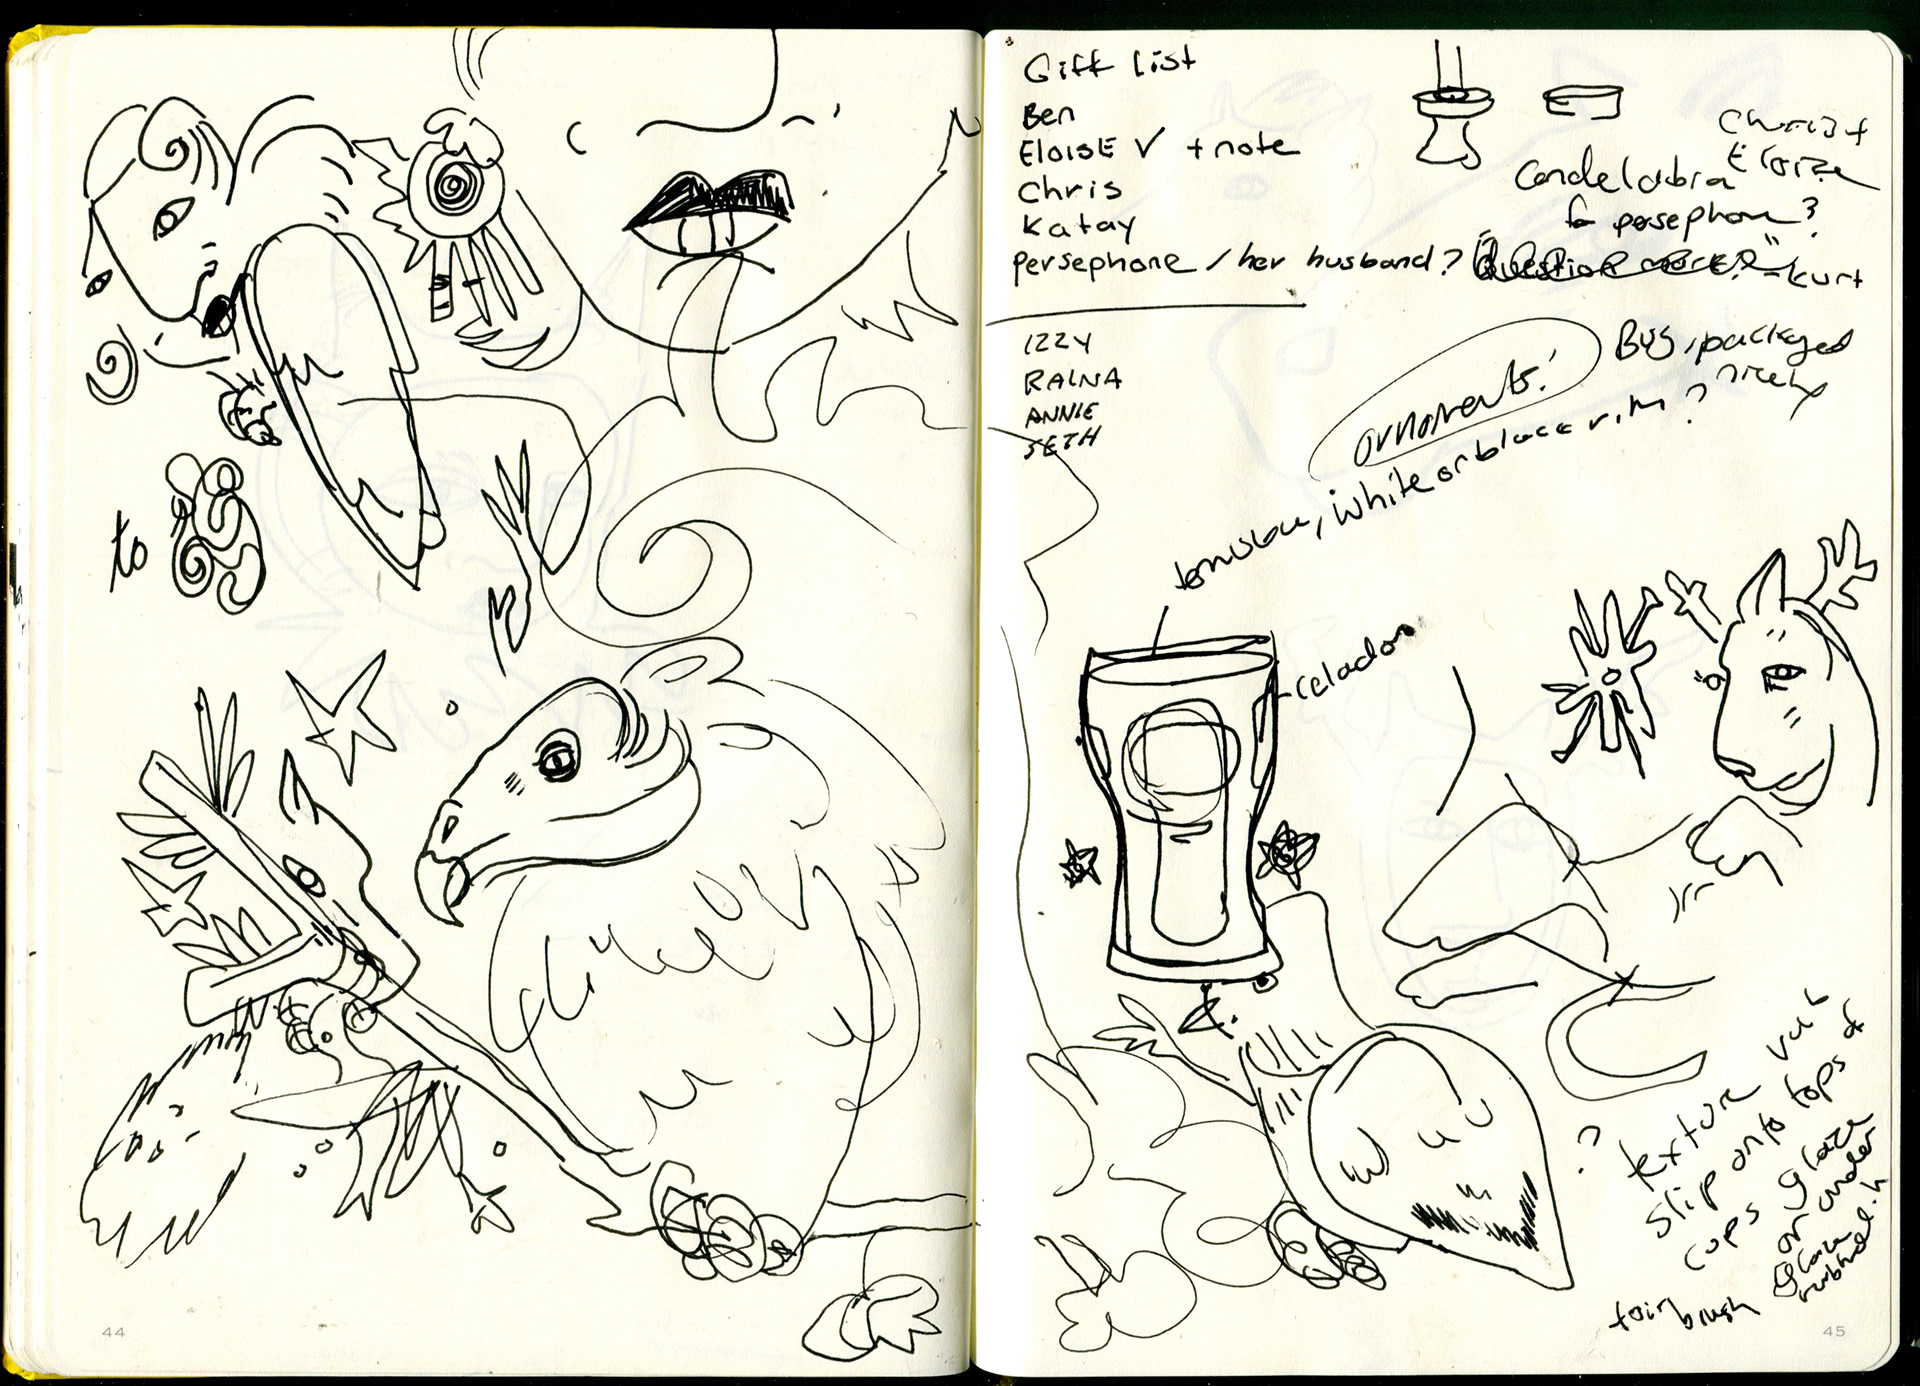 to
44
Gift List
Ben
ELOISE V + note
Chris
Katay
persephone / her husband? "Question mark?" - kurt
IZZY
RAINA
ANNIE
SETH
Chris +
Eloize
Candelabra
for persephone?
ornaments!
Buy, packaged
nicely
, white or black rim?
celadon
?
texture
slip onto tops of
cups glaze
or under
glaze
brush
45